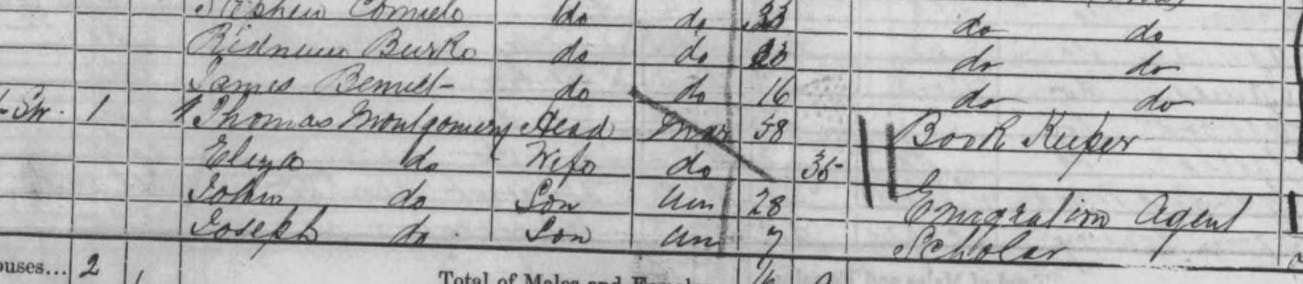 do do 33 do do
Burke do do do do
James Bennett do do 16 do do
Str. 1 Thomas Montgomery Head Mar 58 Book Keeper
Eliza do Wife do 35
John do Son Un 28 Emigration Agent
Joseph do Son Un 7 Scholar
ouses... 2 1 Total of Males and Females 16